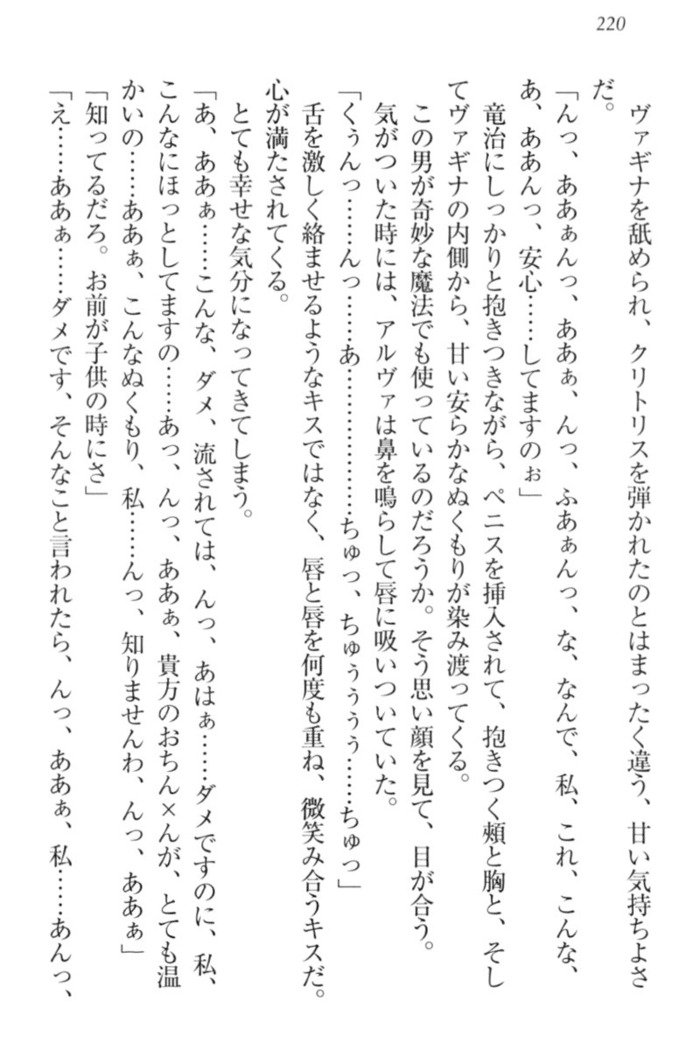 220
ヴァギナを舐められ、クリトリスを弾かれたのとはまったく違う、甘い気持ちよさ
だ。
「んっ、ああぁんっ、ああぁ、んっ、ふあぁんっ、な、なんで、私、これ、こんな、
あ、ああんっ、安心……してますのぉ」
竜治にしっかりと抱きつきながら、ペニスを挿入されて、抱きつく頰と胸と、そし
てヴァギナの内側から、甘い安らかなぬくもりが染み渡ってくる。
この男が奇妙な魔法でも使っているのだろうか。そう思い顔を見て、目が合う。
気がついた時には、アルヴァは鼻を鳴らして唇に吸いついていた。
「くぅんっ……んっ……あ………………ちゅっ、ちゅぅぅぅぅ……ちゅっ」
舌を激しく絡ませるようなキスではなく、唇と唇を何度も重ね、微笑み合うキスだ。
心が満たされてくる。
とても幸せな気分になってきてしまう。
「あ、ああぁ……こんな、ダメ、流されては、んっ、あはぁ……ダメですのに、私、
こんなにほっとしてますの……あっ、んっ、ああぁ、貴方のおちん×んが、とても温
かいの……ああぁ、こんなぬくもり、私……んっ、知りませんわ、んっ、ああぁ」
「知ってるだろ。お前が子供の時にさ」
「え……ああぁ……ダメです、そんなこと言われたら、んっ、ああぁ、私……あんっ、